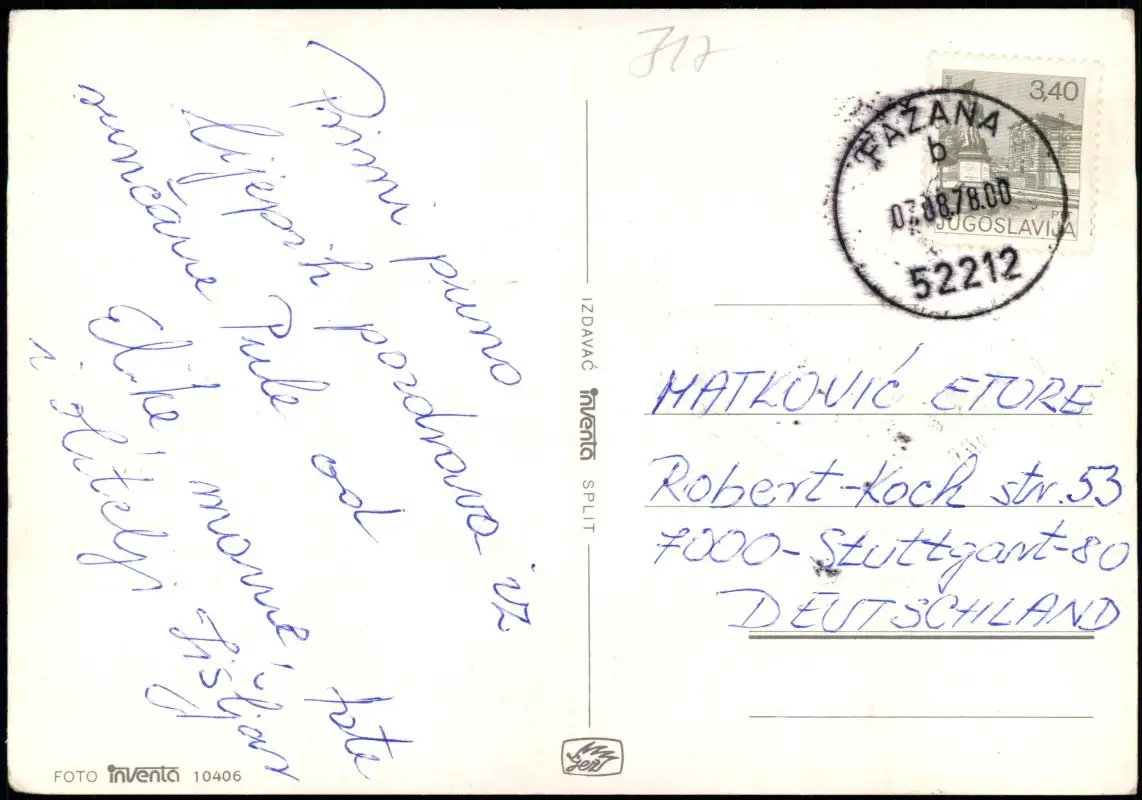 Primi puno
lijepih pozdrava iz
sunčane Pule od
Elike mame, tate
i obitelji Fišljar
FOTO inventa 10406
IZDAVAČ inventa SPLIT
717
3,40
JUGOSLAVIJA
FAŽANA
b
07.08.78.00
52212
MATKOVIĆ ETORE
Robert-Koch str. 53
7000-Stuttgart-80
DEUTSCHLAND